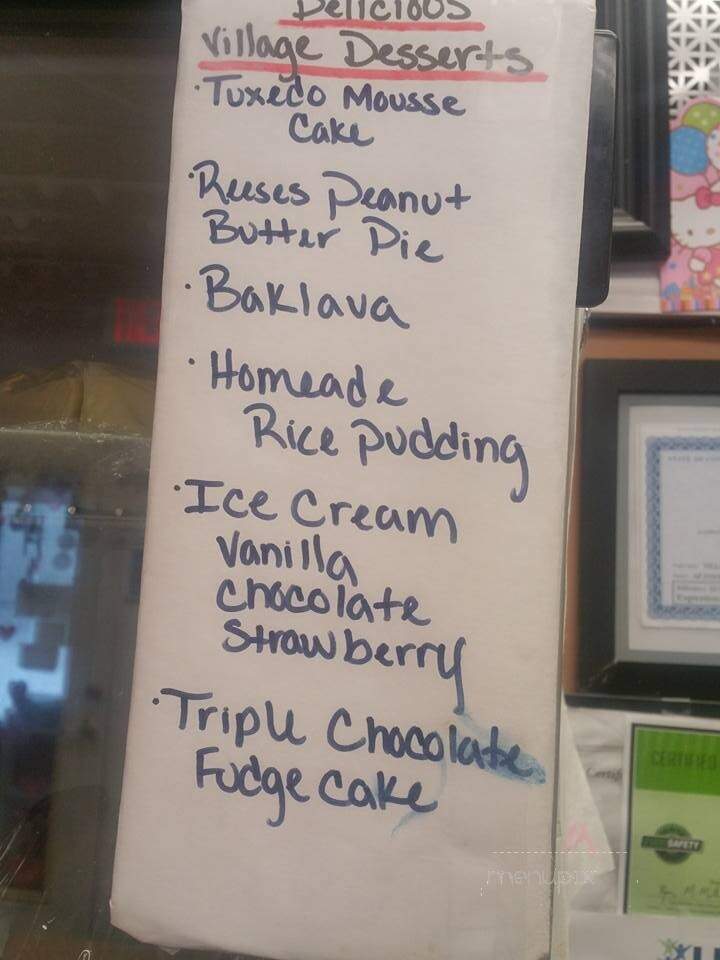 Delicious
Village Desserts
·Tuxedo Mousse
Cake
·Reeses Peanut
Butter Pie
·Baklava
·Homeade
Rice Pudding
·Ice Cream
Vanilla
Chocolate
Strawberry
·Triple Chocolate
Fudge Cake
CERTIFIED
SAFETY
menupix